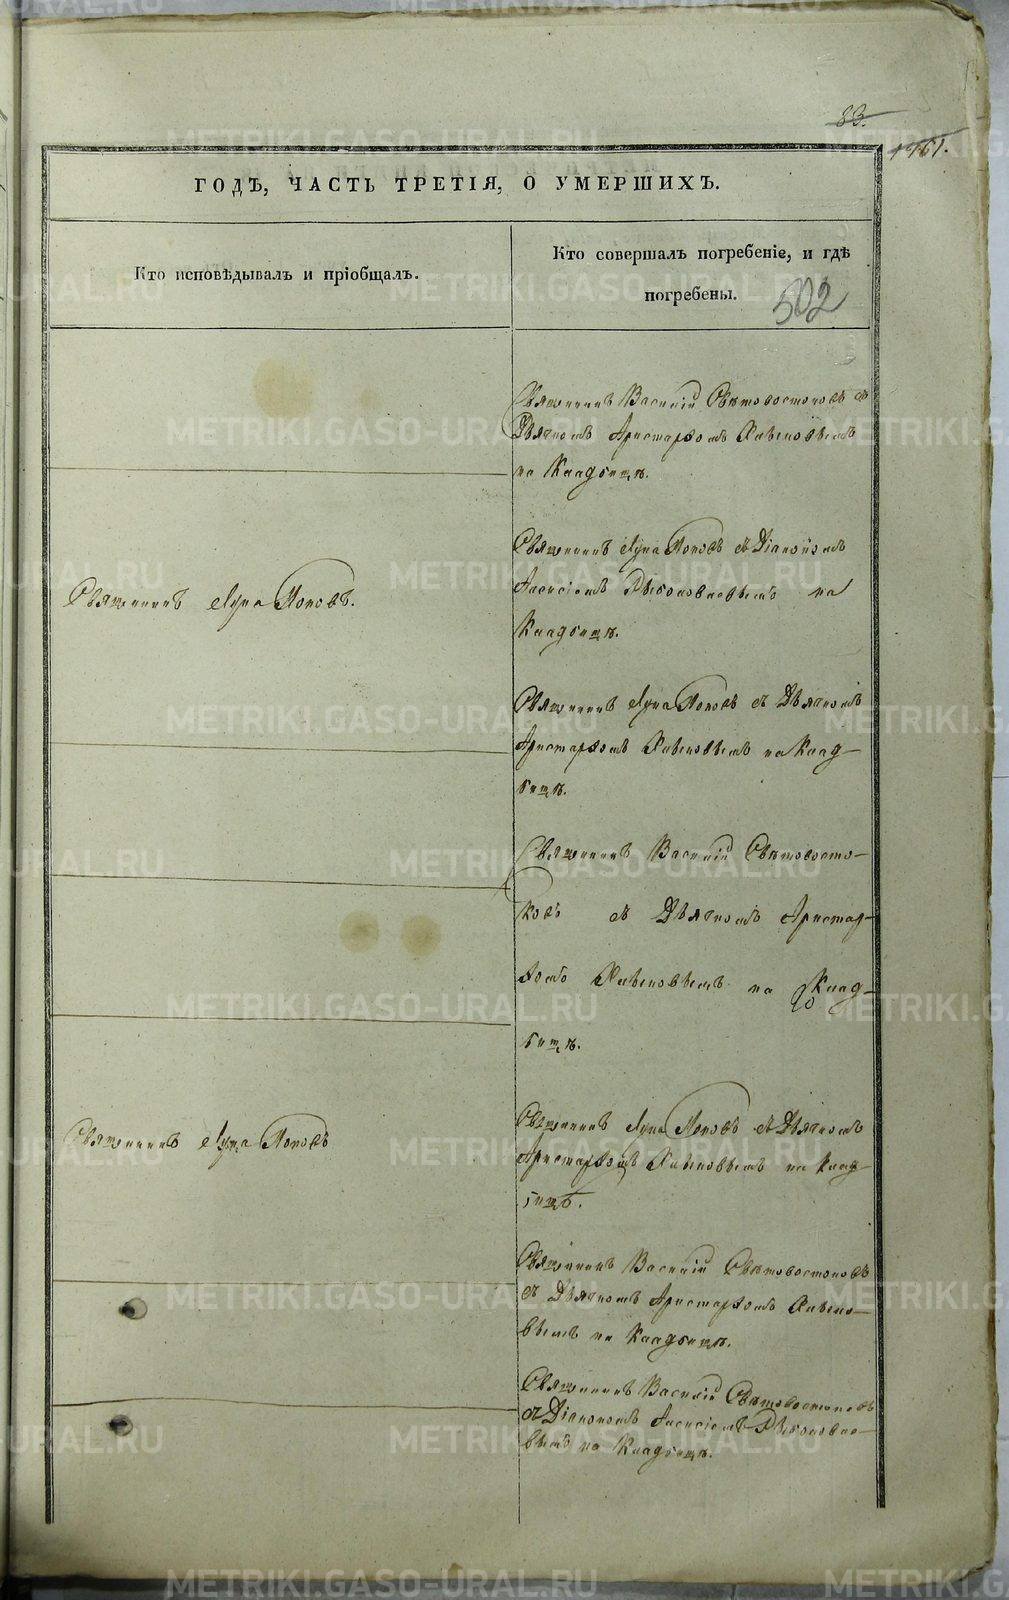 83.
1461.
ГОДЪ, ЧАСТЬ ТРЕТІЯ, О УМЕРШИХЪ.
Кто исповѣдывалъ и пріобщалъ.
Кто совершалъ погребеніе, и гдѣ
погребены.
502
Священникъ Василій Свѣтовостоковъ съ
Дьячкомъ Аристархомъ
на Кладбищѣ.
Священникъ Лука Поповъ.
Священникъ Лука Поповъ съ Діакономъ
Алексіемъ на
Кладбищѣ.
Священникъ Лука Поповъ съ Дьячкомъ
Аристархомъ на Клад-
бищѣ.
Священникъ Василій Свѣтовосто-
ковъ съ Дьячкомъ Аристар-
хомъ на Клад-
бищѣ.
Священникъ Лука Поповъ
Священникъ Лука Поповъ съ Дьячкомъ
Аристархомъ на Клад-
бищѣ.
Священникъ Василій Свѣтовостоковъ
съ Дьячкомъ Аристархомъ
на Кладбищѣ.
Священникъ Василій Свѣтовостоковъ
съ Діакономъ Алексіемъ
на Кладбищѣ.
METRIKI.GASO-URAL.RU